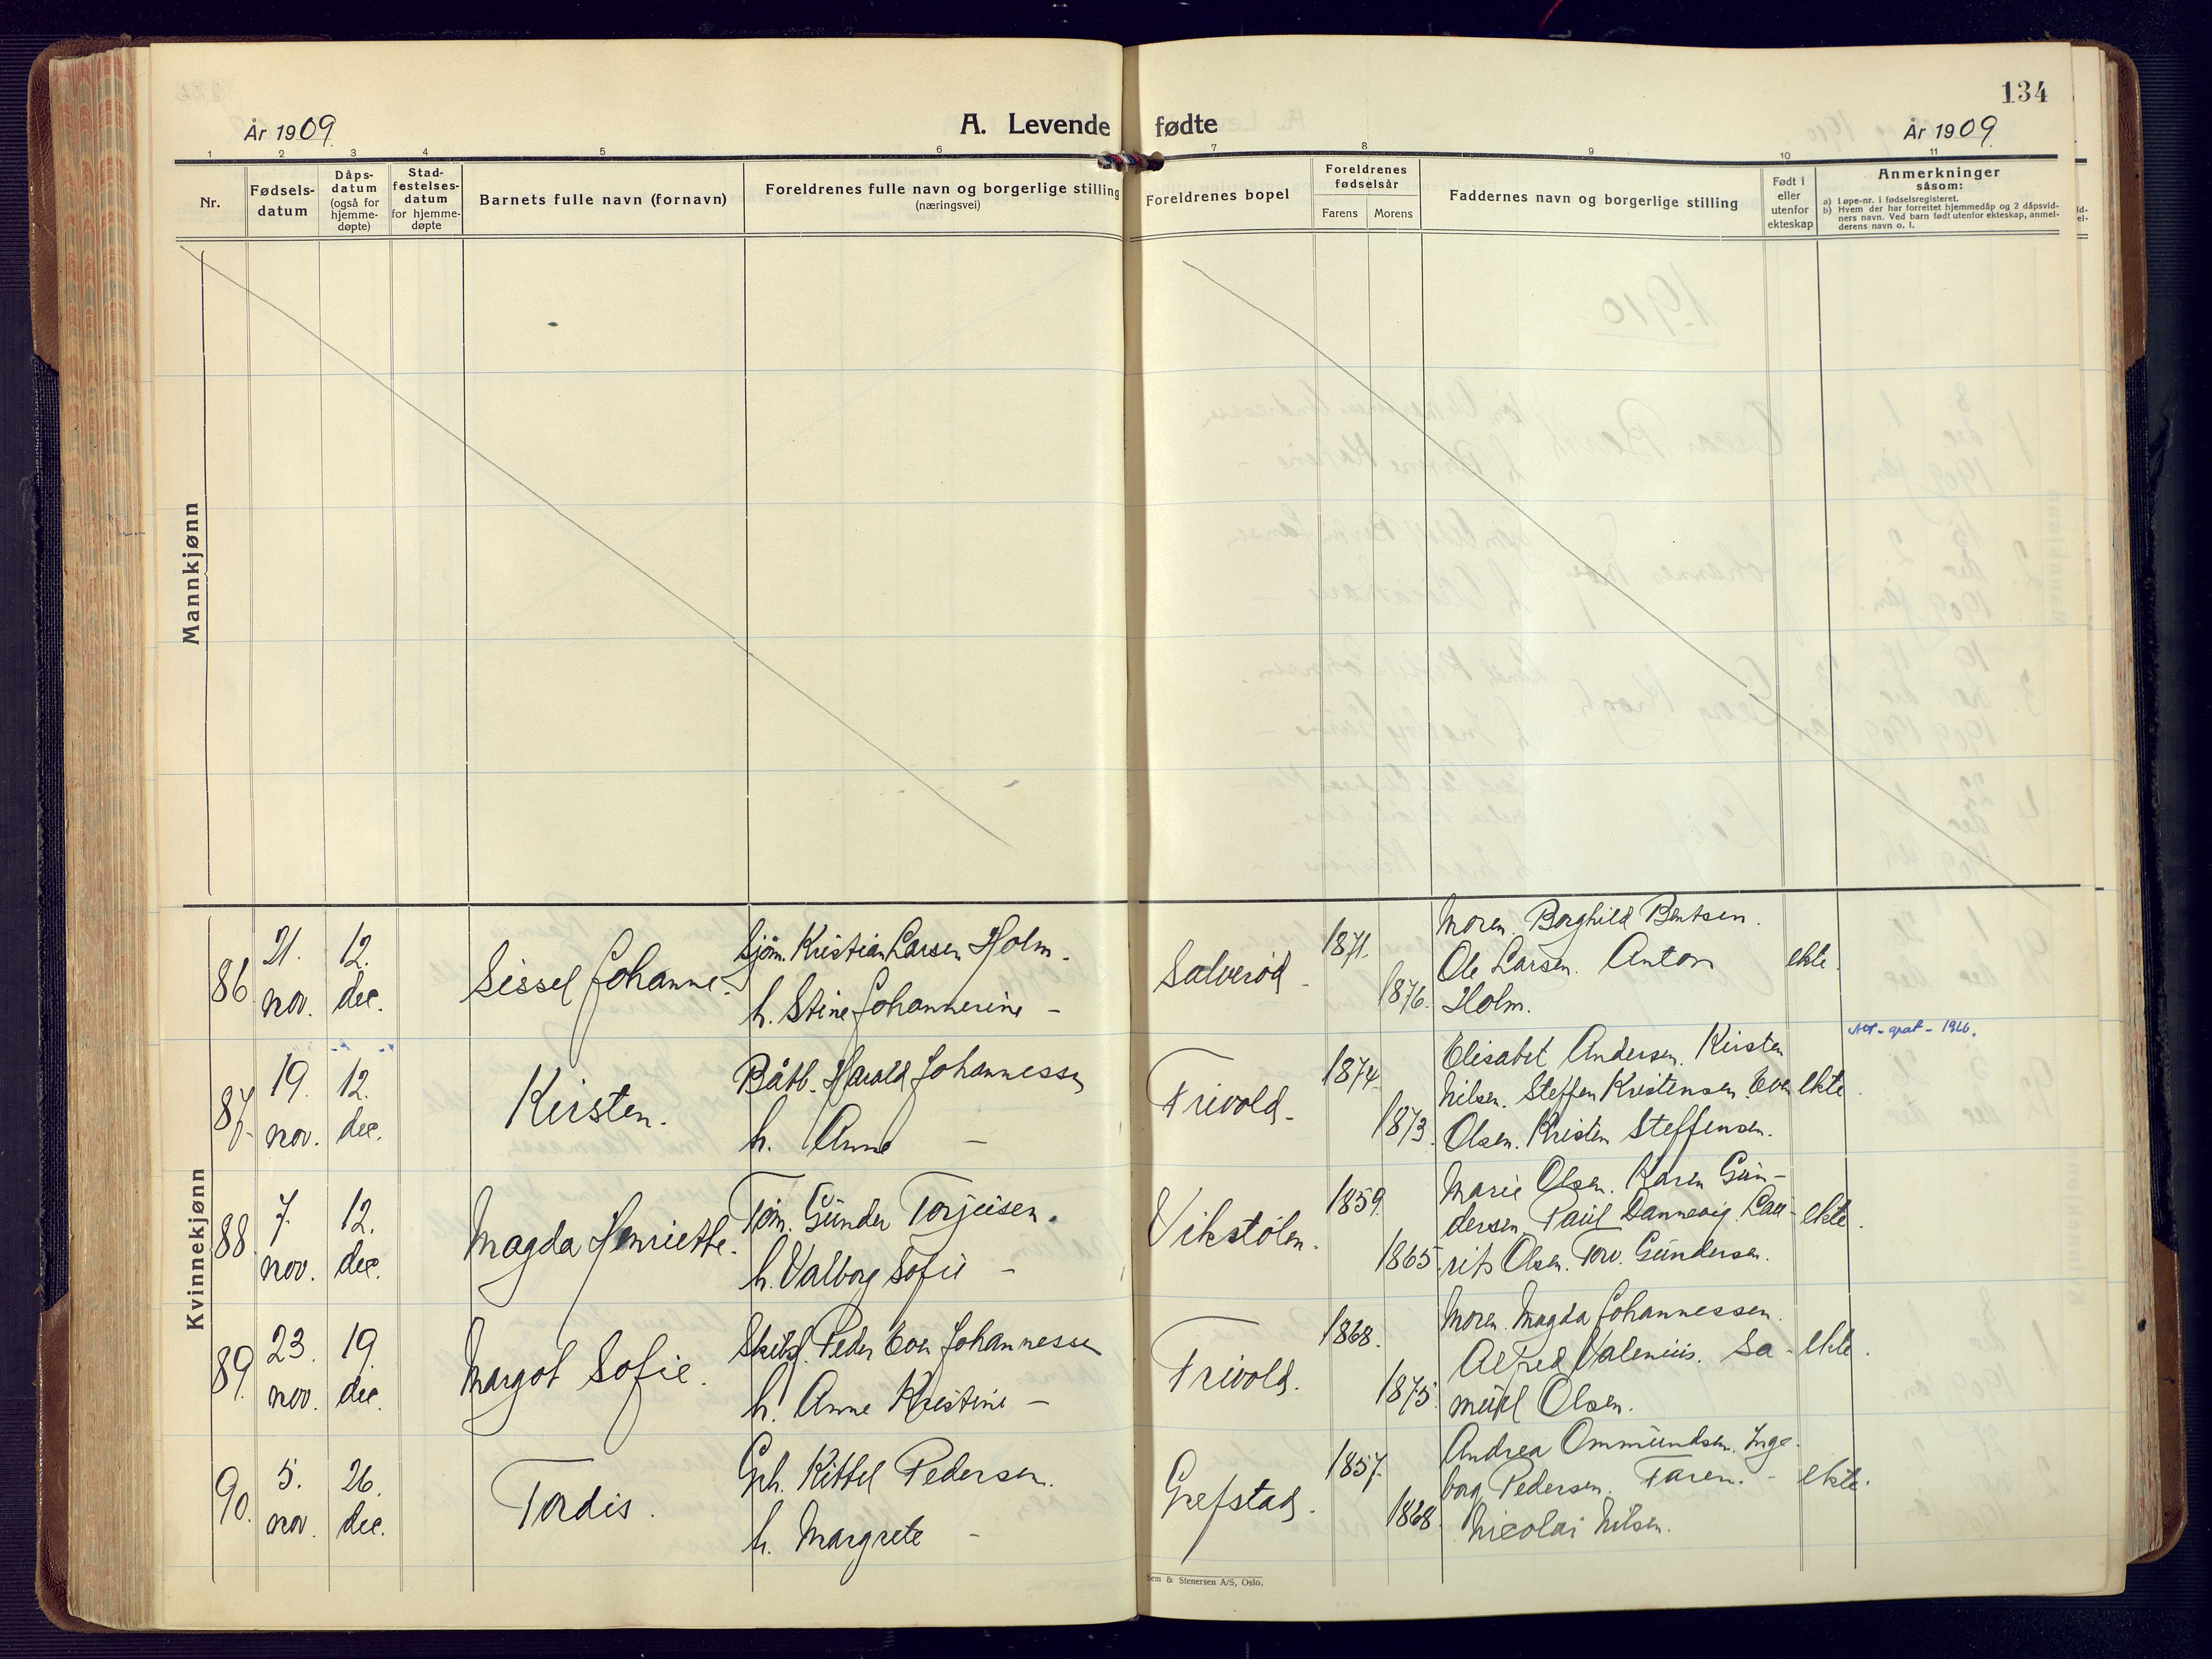 134
År 1909.
A. Levende fødte
År 1909.
1 2 3 4 5 6 7 8 9 10 11
Nr.
Fødsels-
datum
Dåps-
datum
(også for
hjemme-
døpte)
Stad-
festelses-
datum
for hjemme-
døpte
Barnets fulle navn (fornavn)
Foreldrenes fulle navn og borgerlige stilling
(næringsvei)
Foreldrenes bopel
Foreldrenes
fødselsår
Farens Morens
Faddernes navn og borgerlige stilling
Født i
eller
utenfor
ekteskap
Anmerkninger
såsom:
a) Løpe-nr. i fødselsregisteret.
b) Hvem der har forrettet hjemmedåp og 2 dåpsvid-
ners navn. Ved barn født utenfor ekteskap, anmel-
derens navn o. l.
Mannkjønn
Kvinnekjønn
86.
21.
nov.
12.
dec.
Sissel Johanne.
Sjøm. Kristian Larsen Holm.
h. Stine Johannerine –
Salverød.
1871.
1876.
Moren. Borghild Bentsen.
Ole Larsen. Anton
Holm.
ekte.
87.
19.
nov.
12.
dec.
Kirsten.
Båtb. Harald Johannessen
h. Anne –
Trivold.
1874.
1873.
Elisabet Andersen. Kirsten
Nilsen. Steffen Kristensen. Even
Olsen. Kristen Steffensen.
ekte.
1966.
88.
7.
nov.
12.
dec.
Magda Henriette.
Tøm. Gunder Torjusen.
h. Valborg Sofie –
Vikstølen.
1859.
1865.
Marie Olsen. Karen Gun-
dersen. Paul Dannevig. Lau-
rits Olsen. Torv. Gundersen.
ekte.
89.
23.
nov.
19.
dec.
Margot Sofie.
Skibsf. Peder Even Johannessen
h. Anne Kristine –
Trivold.
1868.
1875.
Moren. Magda Johannessen.
Alfred Valenius. Sa-
muel Olsen.
ekte.
90.
5.
nov.
26.
dec.
Tordis.
Gbr. Kittel Pedersen.
h. Margrete –
Grefstad.
1857.
1868.
Andrea Ommundsen. Inge-
borg Pedersen. Faren. –
Nicolai Nilsen.
ekte.
Sem & Stenersen A/S, Oslo.